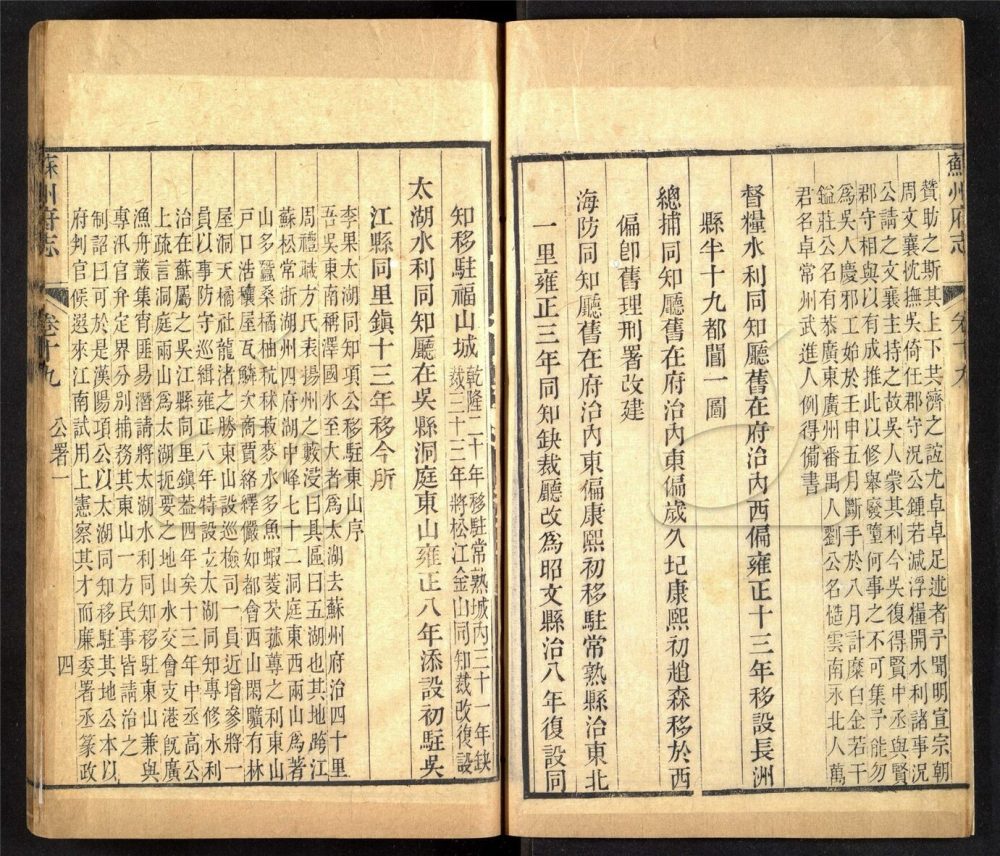 蘇州府志
卷十九
贊助之斯其上下共濟之誼尤卓卓足述者予聞明宣宗朝
周文襄忱撫吳倚任郡守况公鍾若減浮糧開水利諸事况
公請之文襄主持之故吳人蒙其利今吳復得賢中丞與賢
郡守相與以有成推此以修舉廢墮何事之不可集予能勿
爲吳人慶邪工始於壬申五月斷手於八月計糜白金若干
鎰莊公名有恭廣東廣州番禺人劉公名慥雲南永北人萬
君名卓常州武進人例得備書
督糧水利同知廳舊在府治內西偏雍正十三年移設長洲
縣半十九都閶一圖
總捕同知廳舊在府治內東偏歲久圮康熙初趙森移於西
偏卽舊理刑署改建
海防同知廳舊在府治內東偏康熙初移駐常熟縣治東北
一里雍正三年同知缺裁廳改爲昭文縣治八年復設同
知移駐福山城
乾隆二十年移駐常熟城內三十一年缺
裁三十三年將松江金山同知裁改復設
太湖水利同知廳在吳縣洞庭東山雍正八年添設初駐吳
江縣同里鎮十三年移今所
李果太湖同知項公移駐東山序
吾吳東南稱澤國水至大者爲太湖去蘇州府治四十里
周禮職方氏表揚州之藪浸曰具區曰五湖也其地跨江
蘇松常浙湖州四府湖中峰七十二洞庭東西兩山爲著
山多蠶桑橘柚秔秫菽麥水多魚蝦菱芡菰蓴之利東山
戶口浩穰屋瓦鱗次商賈絡繹儼如都會西山閑曠有林
屋洞天橘社龍渚之勝東山設巡檢司一員近增參將一
員以事防守巡緝雍正八年特設立太湖同知專修水利
治在蘇屬之吳江縣同里鎮葢四年矣十三年中丞高公
上疏言洞庭山爲太湖扼要之地山水交會支港旣廣
漁舟叢集宵匪易潛請將太湖水利同知移駐東山兼與
專汛官弁定界分別捕務其東山一方民事皆請治之
制詔曰可於是漢陽項公以太湖同知移駐其地公本以
府判官候選來江南試用上憲察其才而廉委署丞篆政
蘇州府志
卷十九
公署一
四